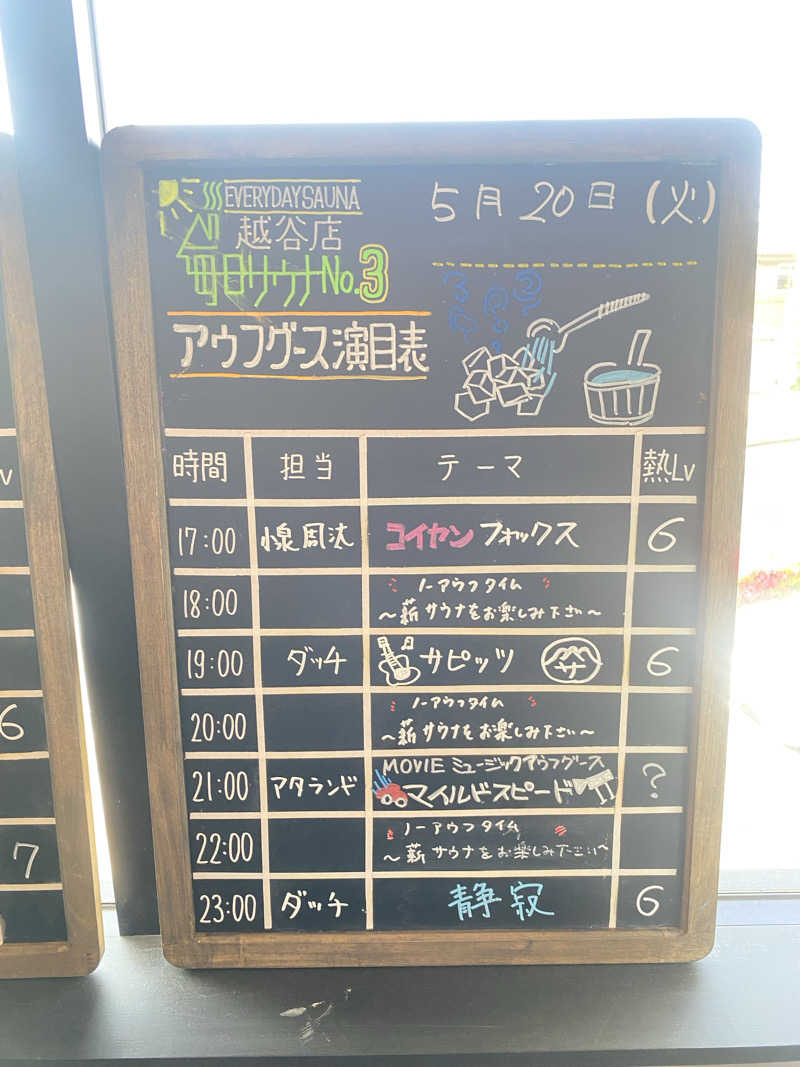 EVERYDAY SAUNA
越谷店
毎日サウナNo.3
5月20日(火)
アウフグース演目表
時間 担当 テーマ 熱Lv
17:00 コイヤンフォックス 6
18:00 ノーアウフタイム
～薪サウナをお楽しみ下さい～
19:00 ダッチ サピッツ サ 6
20:00 ノーアウフタイム
～薪サウナをお楽しみ下さい～
21:00 アタランド MOVIEミュージックアウフグース
マイルドスピード ?
22:00 ノーアウフタイム
～薪サウナをお楽しみ下さい～
23:00 ダッチ 静寂 6
v
6
7